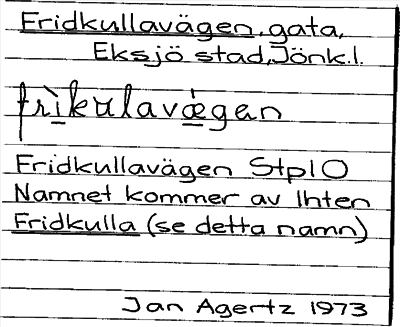 Fridkullavägen, gata,
Eksjö stad, Jönk.l.
frìkulavǽgen
Fridkullavägen StplO
Namnet kommer av lhten
Fridkulla (se detta namn)
Jan Agertz 1973